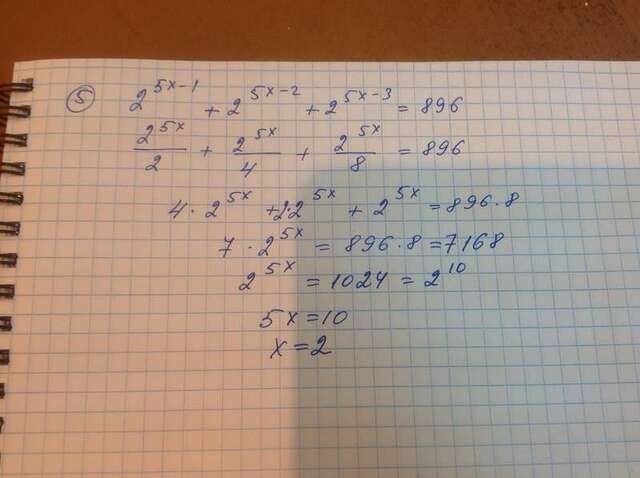 ⑤ 2^{5x-1} + 2^{5x-2} + 2^{5x-3} = 896
\frac{2^{5x}}{2} + \frac{2^{5x}}{4} + \frac{2^{5x}}{8} = 896
4 · 2^{5x} + 2·2^{5x} + 2^{5x} = 896·8
7 · 2^{5x} = 896·8 = 7168
2^{5x} = 1024 = 2^{10}
5x = 10
x = 2